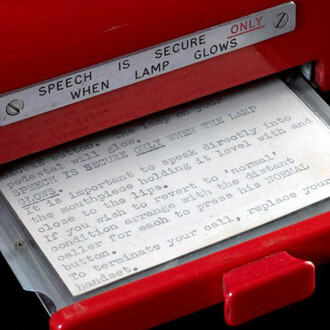 SPEECH IS SECURE ONLY
WHEN LAMP GLOWS
button. The lamp on your
pedestal will glow.
SPEECH IS SECURE ONLY WHEN THE LAMP
GLOWS.
It is important to speak directly into
the mouthpiece holding it level with and
close to the lips.
If you wish to revert to 'normal'
condition arrange with the distant
caller for each to press his NORMAL
button.
To terminate your call, replace your
handset.